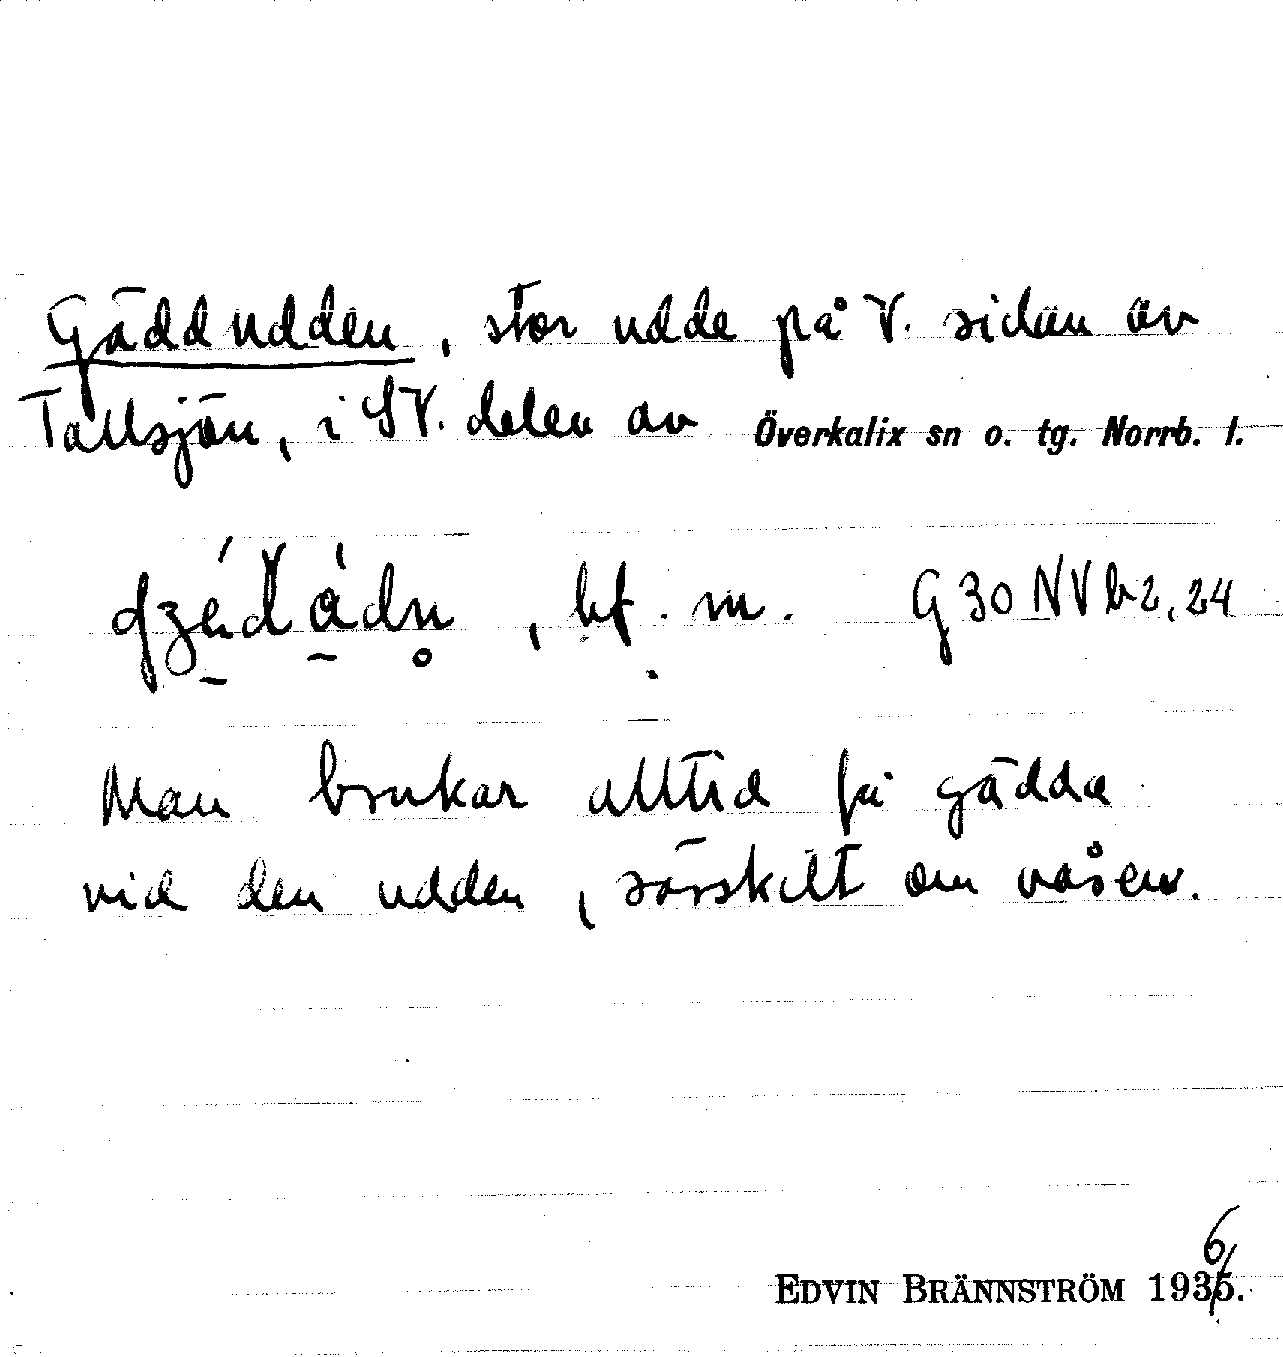 Gäddudden, stor udde på V. sidan av
Tallsjön, i SV. delen av Överkalix sn o. tg. Norrb. l.
, bf. m. G 30 NV b 2, 24
Man brukar alltid få gädda
vid den udden, särskilt om våren.
EDVIN BRÄNNSTRÖM 1936.